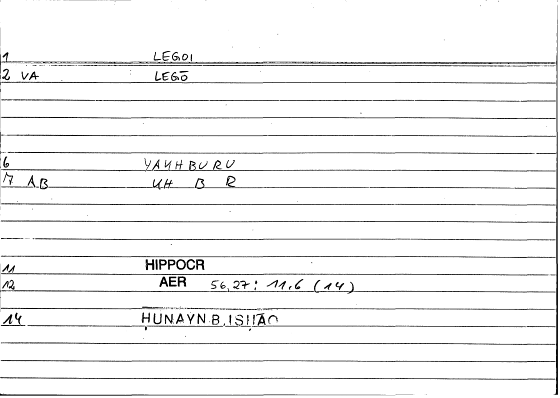 1 LEGOI
2 VA LEGŌ
6 YAUHBURU
7 AB UH B R
11 HIPPOCR
12 AER 56,27: 11,6 (14)
14 ḤUNAYN B. ISḤĀQ